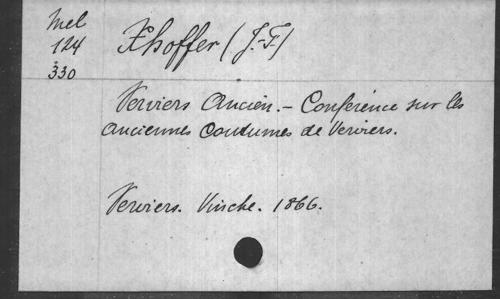 Mel
124
330
Xhoffer (J.-F.)
Verviers Ancien. - Conférence sur les
anciennes coutumes de Verviers.
Verviers. Vinche. 1866.